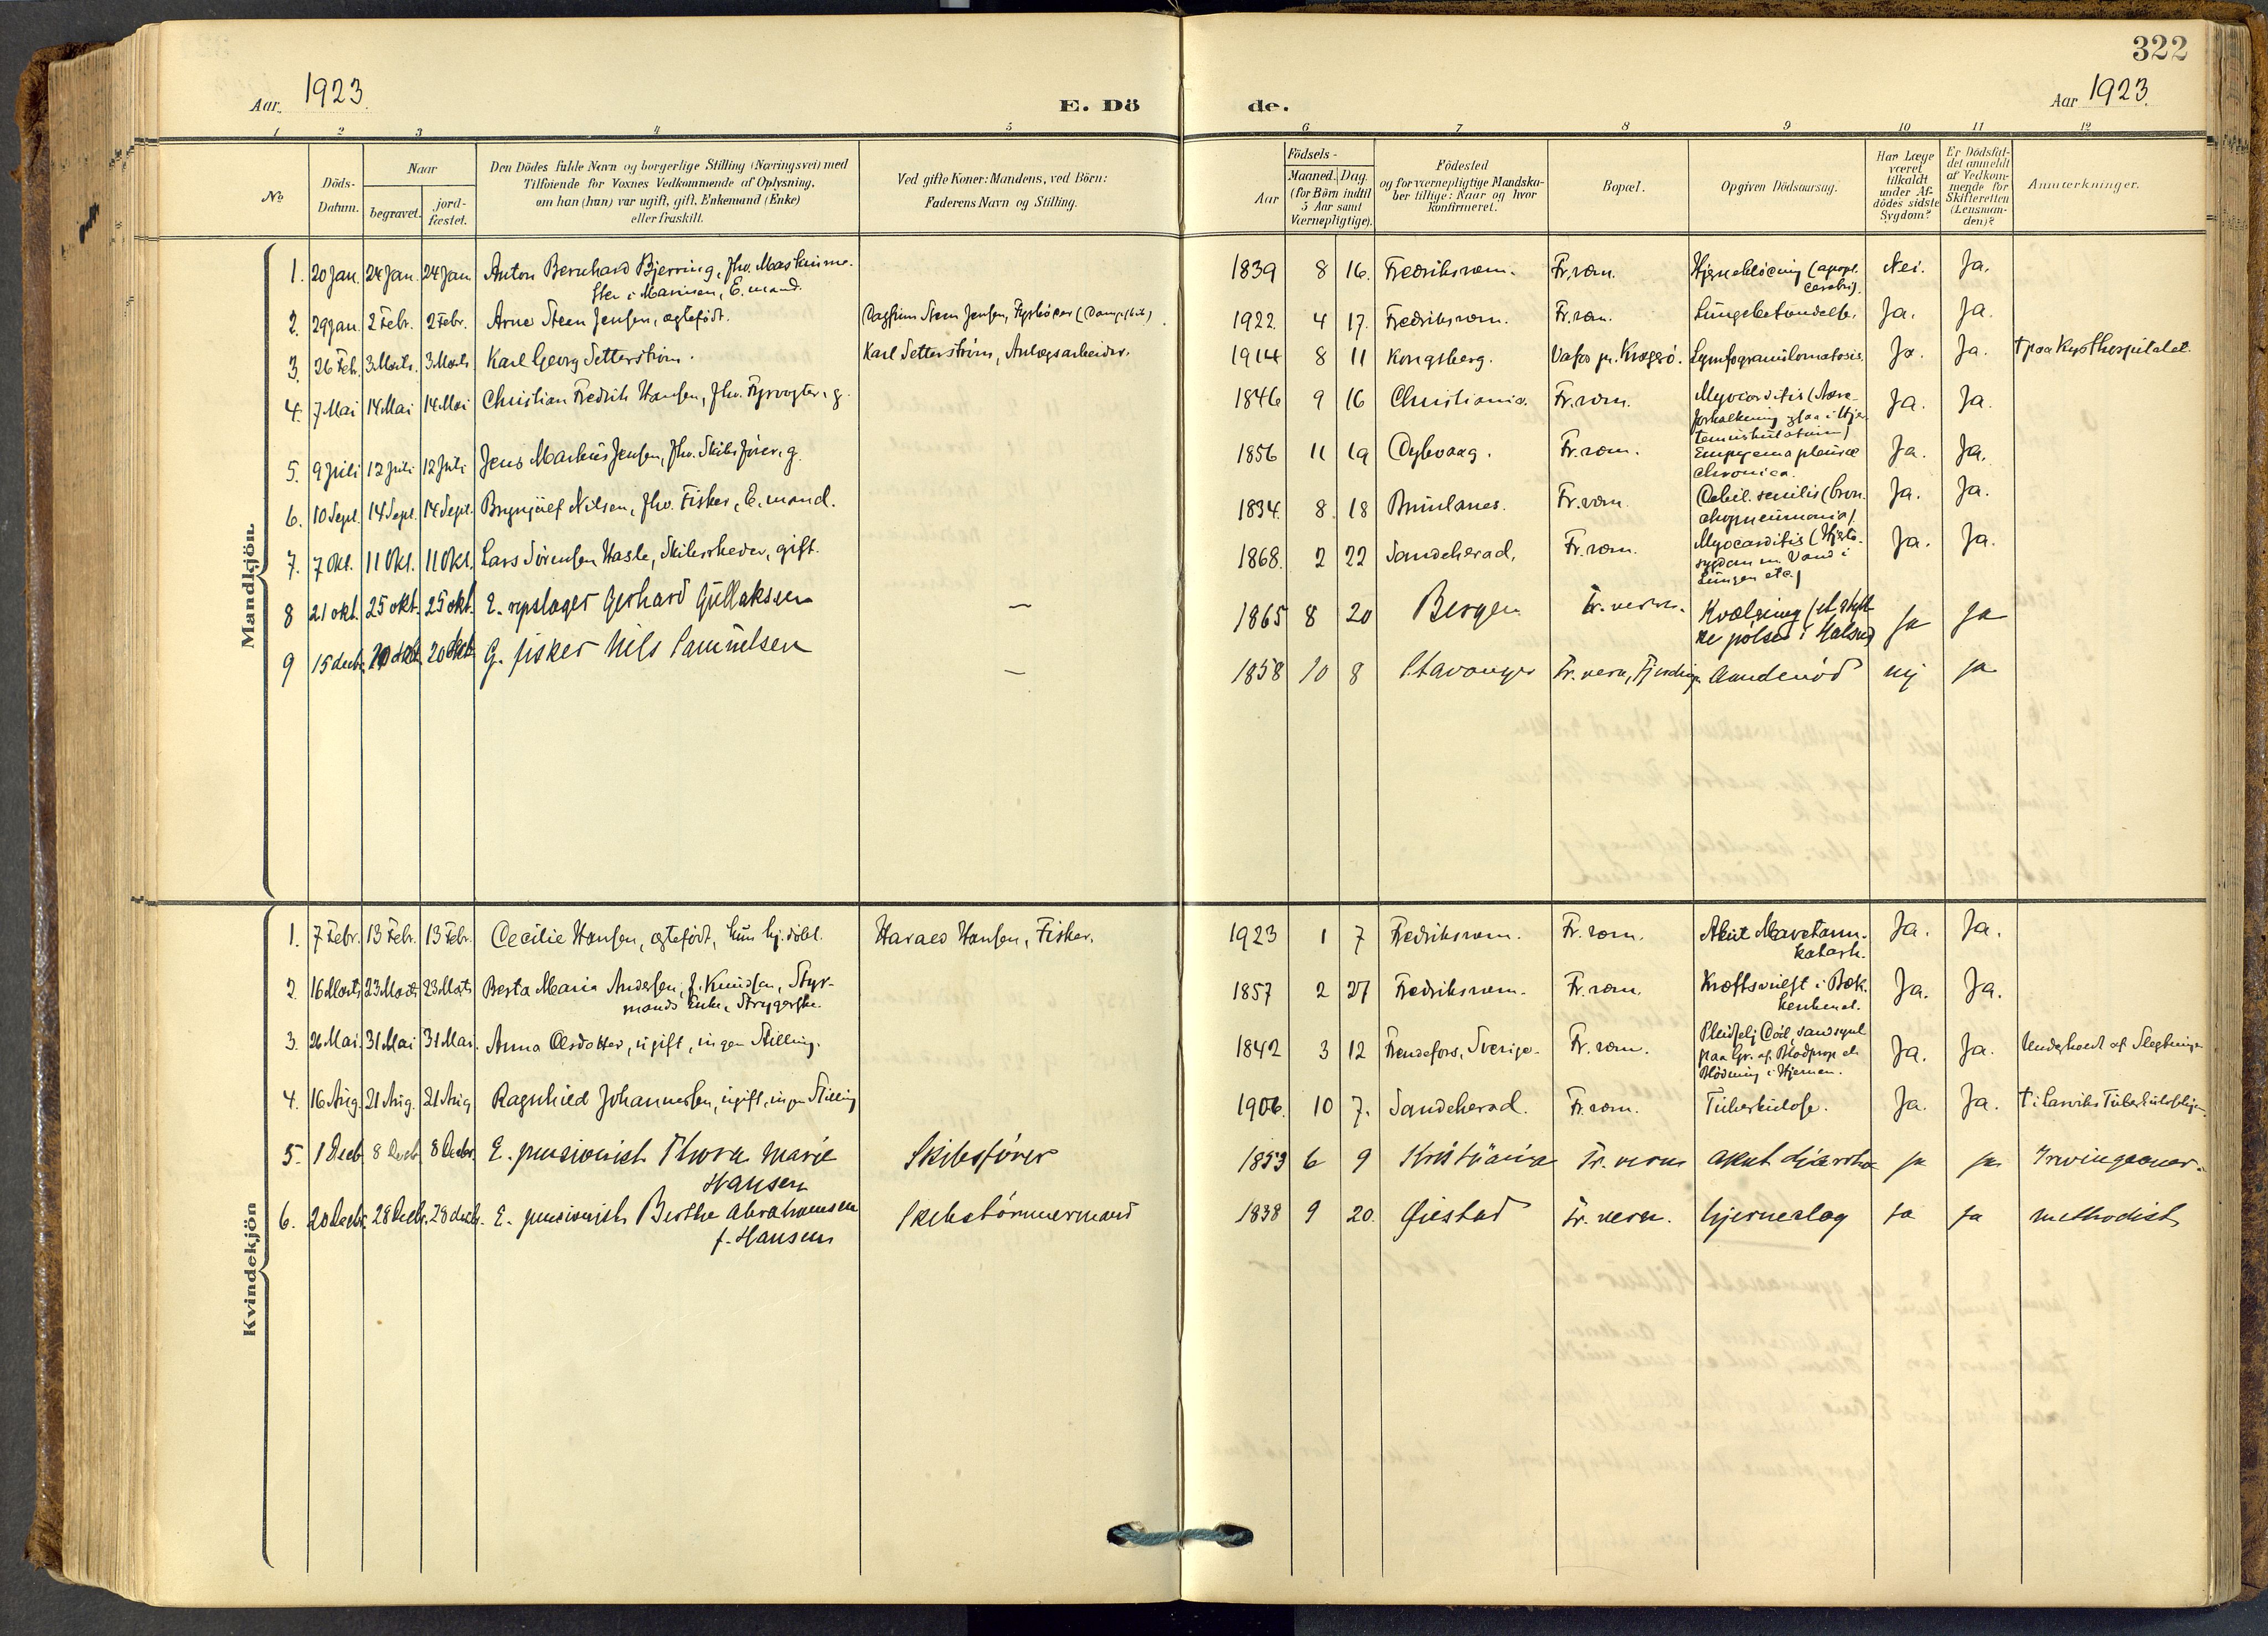 322
Aar. 1923.
E. Dö
de.
Aar 1923.
1 2 3 4 5 6 7 8 9 10 11 12
No
Döds-Datum.
Naar
begravet.
jord-fæstet.
Den Dödes fulde Navn og borgerlige Stilling (Næringsvei) med
Tilföiende for Voxnes Vedkommende af Oplysning,
om han (hun) var ugift, gift, Enkemand (Enke)
eller fraskilt.
Ved gifte Koner: Mandens, ved Börn:
Faderens Navn og Stilling.
Födsels-
Aar
Maaned. Dag.
(for Börn indtil
5 Aar samt
Værnepligtige).
Födested
og for værnepligtige Mandska-
ber tillige: Naar og hvor
konfirmeret.
Bopæl.
Opgiven Dödsaarsag.
Har Læge
været
tilkaldt
under Af-
dödes sidste
Sygdom?
Er Dödsfal-
det anmeldt
af Vedkom-
mende for
Skifteretten
(Lensman-
den)?
Anmærkninger.
Mandkjön.
1. 20 Jan. 24 Jan. 24 Jan Anton Bernhard Bjerring, fhv. Maskinme- 1839 8 16. Fredriksværn. Fr.værn. Hjerneblödning (apopl. Nei. Ja.
ster i Marinen, E.mand. cerebri).
2. 29 Jan. 2 Febr. 2 Febr. Arne Steen Jensen, ægtefödt. Dagfinn Steen Jensen, Fyrböter (Dampskib) 1922. 4 17. Fredriksværn. Fr.værn. Lungebetændelse. Ja. Ja.
3. 26 Feb. 3 Marts. 3 Marts Karl Georg Setterström. Karl Setterström, Anlægsarbeider. 1914 8 11 Kongsberg. Vafos pr. Kragerö. Lymfogranulomatosis. Ja. Ja. † paa Kysthospitalet.
4. 7 Mai 14 Mai 14 Mai Christian Fredrik Hansen, fhv. Fyrvogter, g. 1846 9 16 Christiania. Fr.værn. Myocarditis (Aare- Ja. Ja.
forkalkning
5. 9 Juli 12 Juli 12 Juli Jens Markus Jensen, fhv. Skibsförer, g. 1856 11 19 Dybvaag. Fr.værn. Empyema pleuræ Ja. Ja.
chronica.
6. 10 Sept. 14 Sept. 14 Sept. Brynjulf Nilsen, fhv. Fisker, E.mand. 1834. 8. 18 Brunlanes. Fr.værn. Debil. senilis (bron- Ja. Ja.
chopneumonia).
7. 7 Okt. 11 Okt. 11 Okt. Lars Sörensen Hasle, Skibsrheder, gift. 1868. 2 22 Sandeherad. Fr.værn. Myocarditis (Hjerte- Ja. Ja.
sygdom m. Vand i
Lungen etc.)
8 21 okt. 25 okt. 25 okt. E. repslager Gerhard Gullaksen — 1865 8 20 Bergen Fr. værn. Kvælning (et stykke Ja Ja
pölse i Halsen)
9 15 decb. 20 20 G. fisker Nils Samuelsen — 1858 10 8 Stavanger Fr. værn, Aandenöd nej Ja
Kvindekjön
1. 7 Febr. 13 Febr. 13 Febr. Cecilie Hansen, ægtefödt, kun hj.döbt. Harald Hansen, Fisker. 1923 1 7 Fredriksværn. Fr.værn. Akut Mavetarm- Ja. Ja.
katarh.
2. 16 Marts 23 Marts 23 Marts Berta Maria Andersen, f. Knudsen, Styr- 1857 2 27 Fredriksværn. Fr.værn. Kræftsvulst i Bæk- Ja. Ja.
mands Enke, Strygerske. kenbenet.
3. 26 Mai. 31 Mai 31 Mai. Anna Olsdatter, ugift, ingen Stilling. 1842 3 12 Frendefors, Sverige. Fr.værn. Pludselig Död, sandsynl. Ja. Ja. Underholdt af Slegtninge
paa Gr. af Blodprop el.
Blödning i Hjernen.
4. 16 Aug. 21 Aug. 21 Aug Ragnhild Johannessen, ugift, ingen Stilling 1906. 10 7. Sandeherad. Fr.værn. Tuberkulose. Ja. Ja. † i Larviks
5. 1 Decb 8 Decb 8 Decbr. E. pensionist Thora Marie Skibsförer 1853 6 9 Kristiania Fr. værn akut diarrhe ja ja Irvingeaner.
Hansen
6. 20 Decbr. 28 Decb. 28 decb. E. pensionist Berthe Abrahamsen Skibstömmermand 1838 9 20. Öiestad Fr. værn. hjerneslag ja ja methodist
f. Hansen